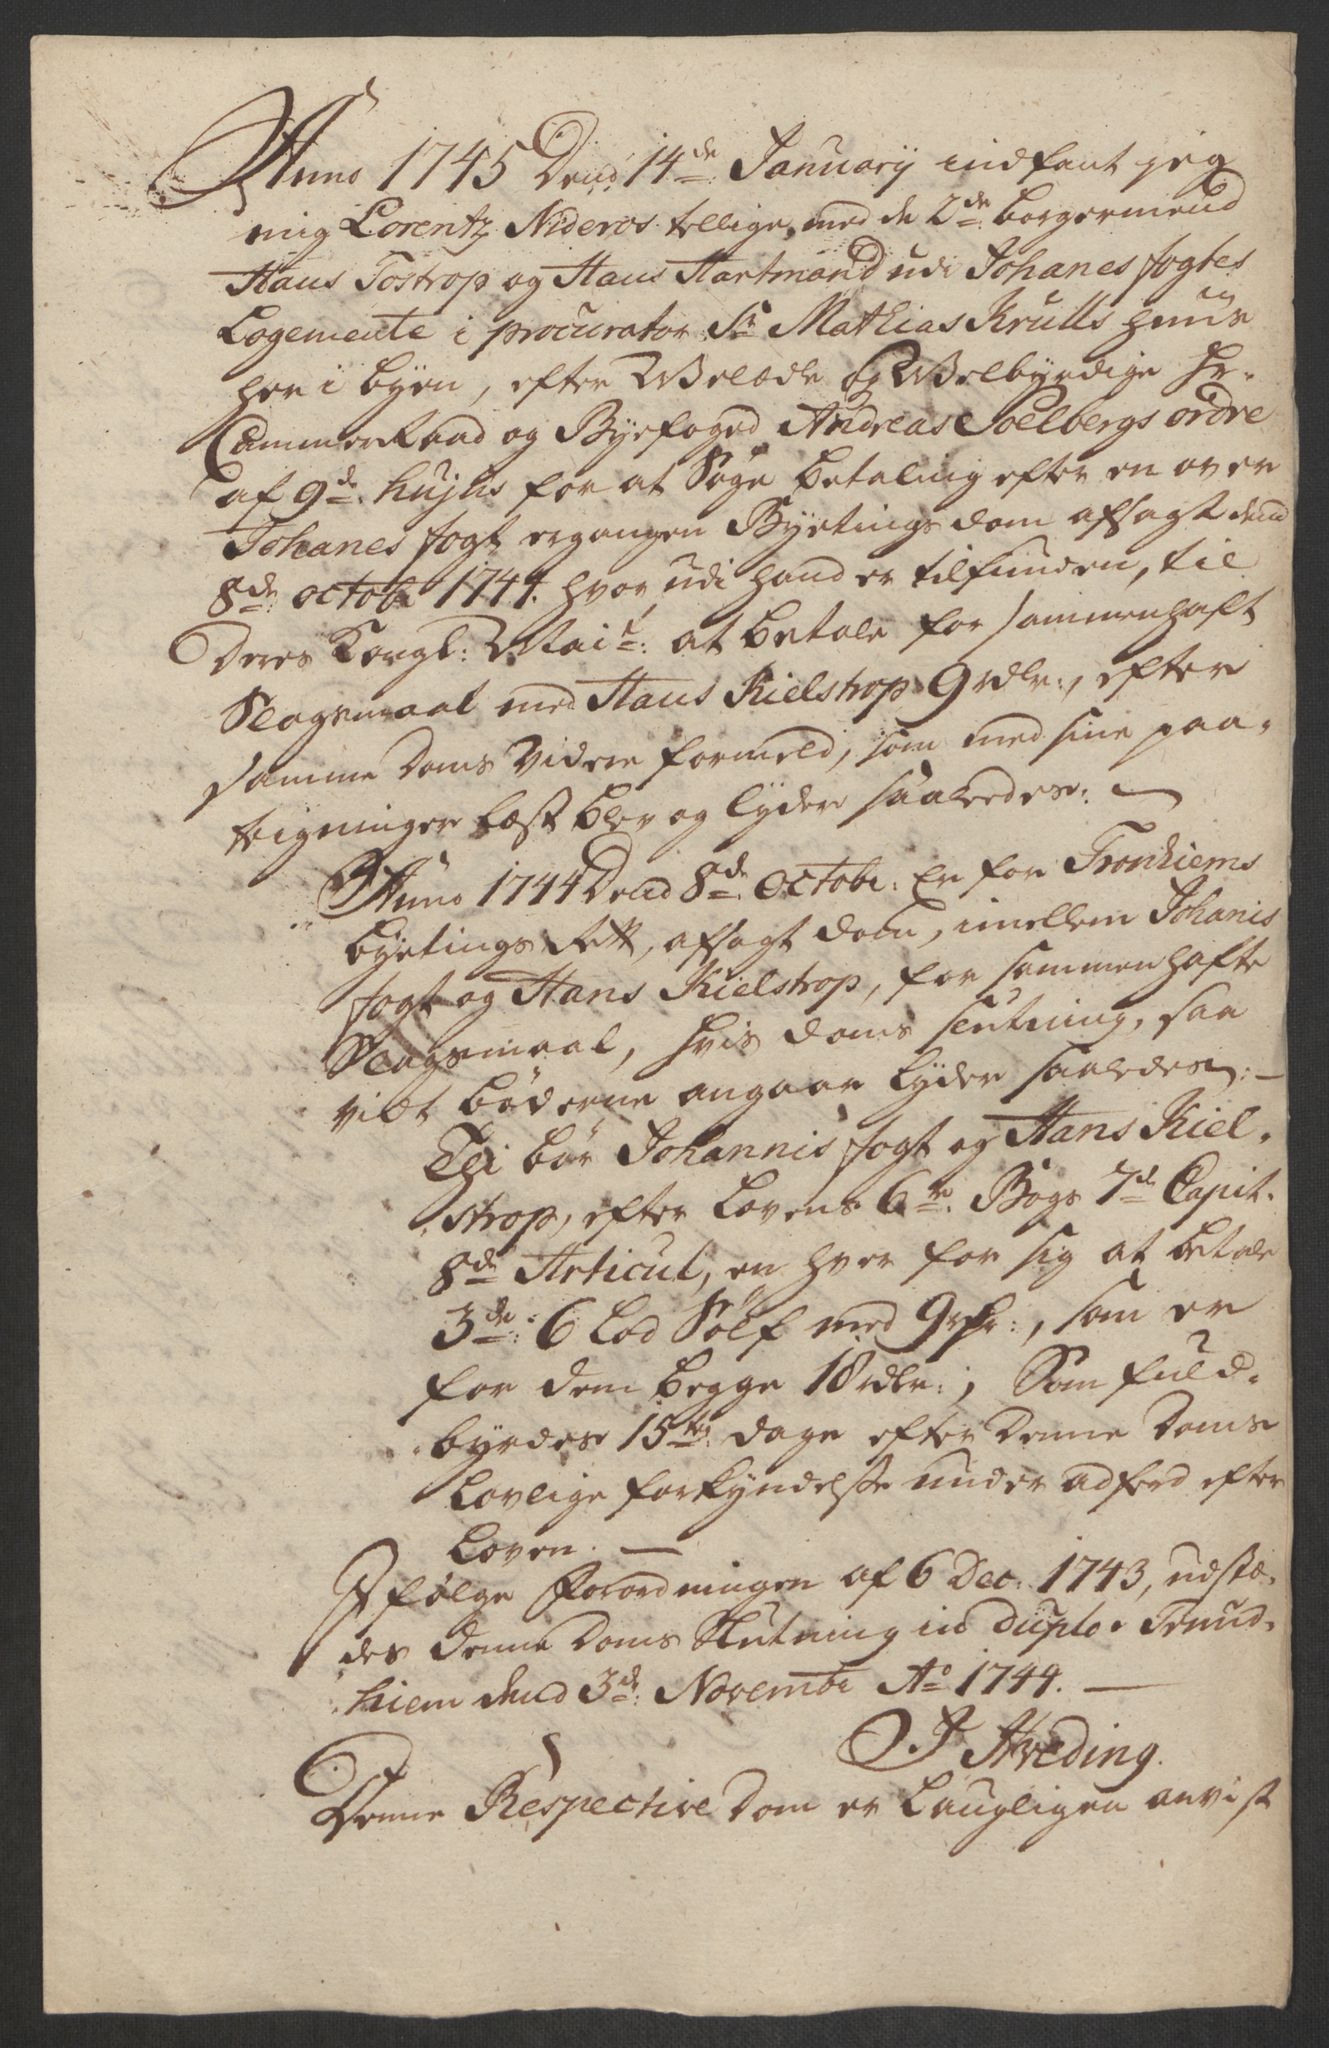 Anno 1745 Dend 14de January indfant jeg
mig Lorentz Nideros tellige med de 2de borgermend
Hans Tostrop og Hans Hartmand udi Johanes fogtes
Logemente i procurator Sr Mathias Krulls huus
her i byen, efter WelÆdle og Welbyrdige Hr.
CammerRaad og Byefoged Andreas Soelbergs ordre
af 9de hujus for at Søge betaling efter en over
Johanes fogt ergangen Byetings dom afsagt dend
8de octobr 1744. hvor udi hand er tilfunden, til
Deres Kongl: Mait: at betale for sammenhaft
Slagsmaal med Hans Kielstrop 9 rdlr:, efter
samme Doms videre formeld, som med sine paa-
teigninger læst blev og lyder saaledes:
Anno 1744 Dend 8de octobr: Er for Tronhiems
byetings Rett, afsagt dom, imellem Johanis
fogt og Hans Kielstrop, for sammenhafte
Slagsmaal, hvis doms slutning, saa
vidt bøderne angaar lyder saaledes: -
Thi bør Johannis fogt og Hans Kiel-
strop, efter Lovens 6te Bogs 7de Capit.
8de Articul, en hver for sig at betale
3de: 6 Lod Sølf med 9 rdr:, som er
for dem begge 18 rdlr:, Som fuld-
byrdes 15ten dage efter Denne Doms
Lovlige forkyndelsse under adferd efter
Loven. -
Ifølge Forordningen af 6 Dec: 1743, udstæ-
des denne Doms Slutning in duplo. Trund-
hiem dend 3de: Novembr Ao 1744. -
J Hveding.
Denne Respective Dom er Laugligen anvist